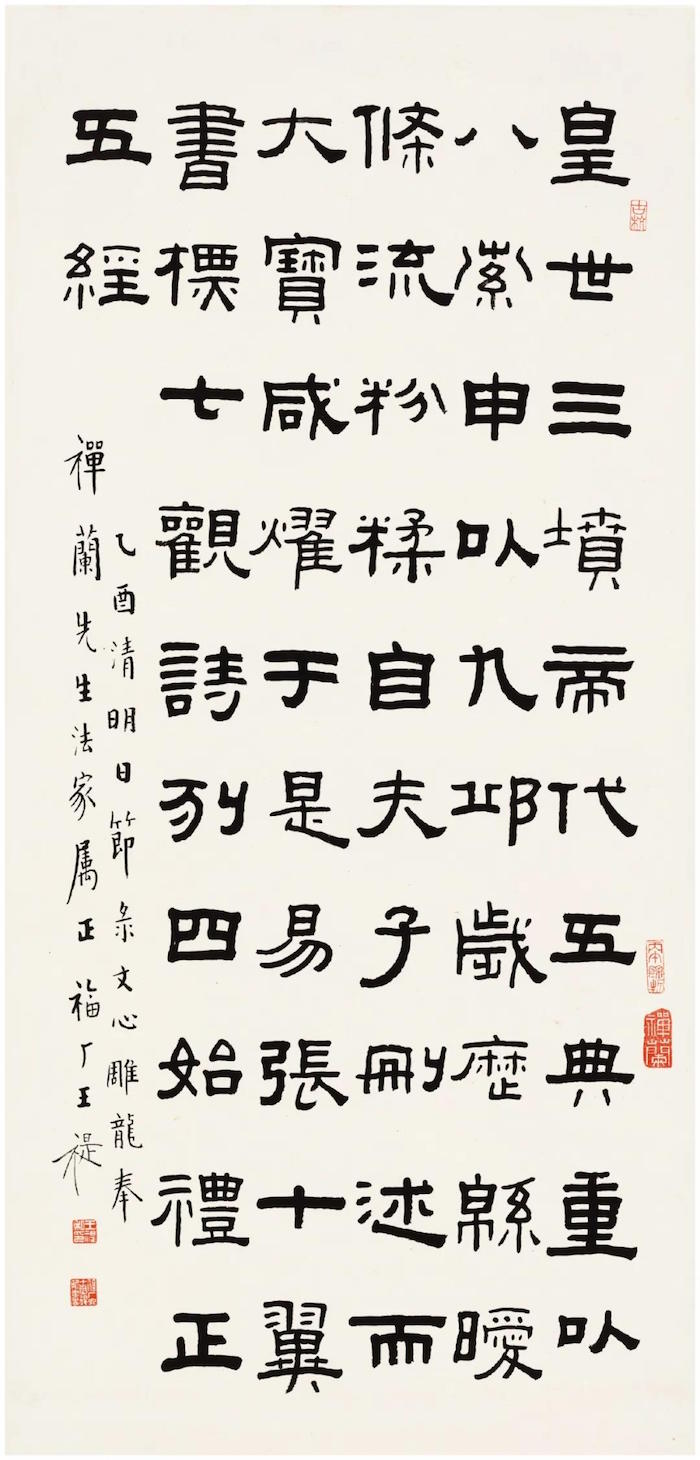 皇世三墳帝代五典重㠯
八索申㠯九邱歲歷緜曖
條流粉糅自夫子刪述而
大寶咸燿于是易張十翼
書標七觀詩列四始禮正
五經
乙酉清明日節彔文心雕龍奉
禪蘭先生法家属正福厂王褆
禪蘭